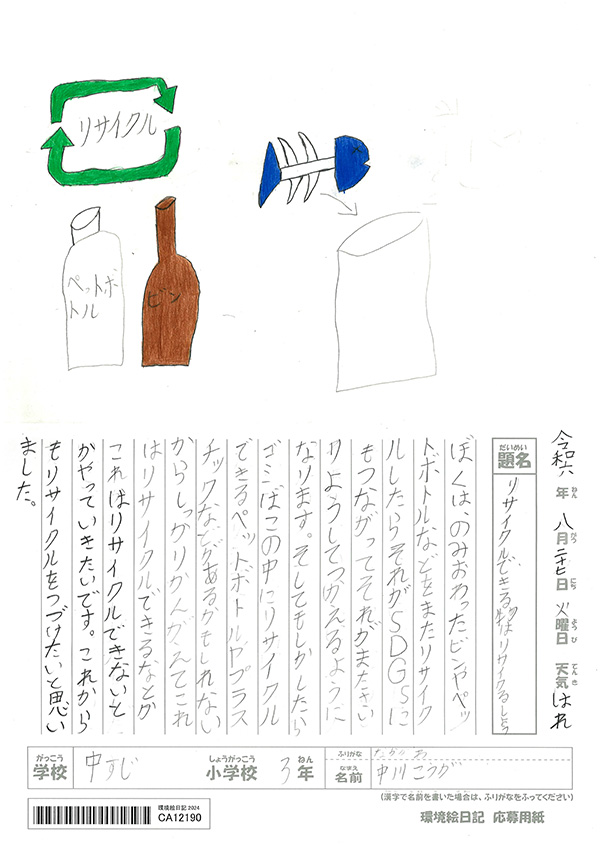 リサイクル
ペットボ
トル
ビン
令和六年八月二十七日火曜日天気はれ
ねんがつにちようびてんき
だいめい
題名
リサイクルできる物はリサイクルしよう
ぼくは、のみおわったビンやペッ
トボトルなどをまたリサイク
ルしたらそれがSDGsに
もつながってそれがまたさい
りようしてつかえるように
なります。そしてもしかしたら
ゴミばこの中にリサイクル
できるペットボトルやプラス
チックなどがあるかもしれない
からしっかりかんがえてこれ
はリサイクルできるなとか
これはリサイクルできないと
かやっていきたいです。これから
もリサイクルをつづけたいと思い
ました。
がっこう
学校
中すじ
しょうがっこう
小学校
3年
ねん
ふりがな
なまえ
名前
中川こうが
(漢字で名前を書いた場合は、ふりがなをふってください)
環境絵日記 2024
CA12190
環境絵日記 応募用紙